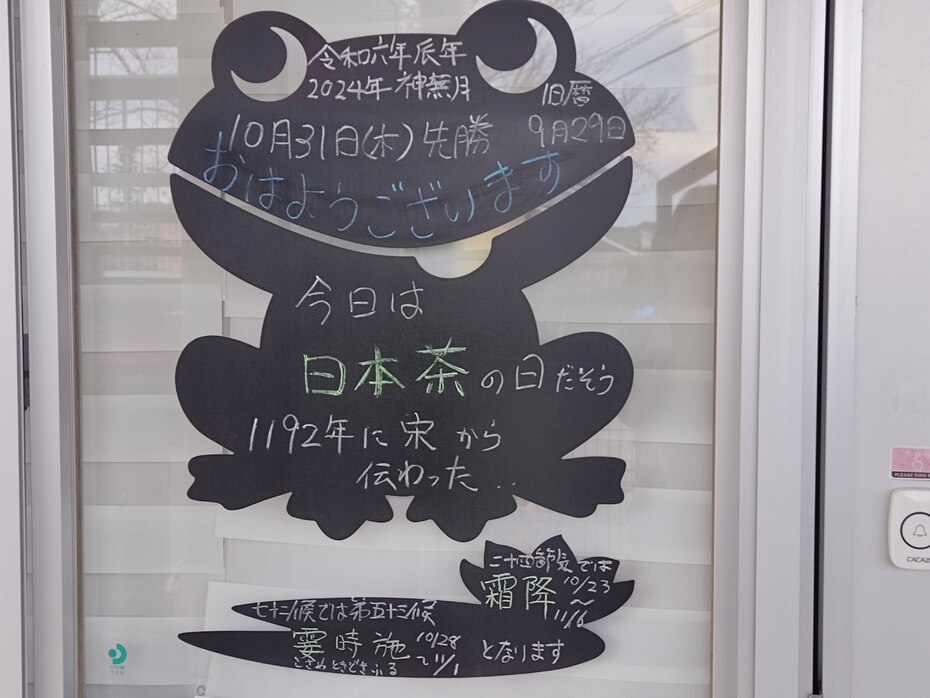 令和六年辰年
2024年神無月
旧暦
10月31日(木)先勝
9月29日
おはようございます
今日は
日本茶の日だそう
1192年に宋から
伝わった..
二十四節気では
霜降 10/23
～
11/6
七十二候では第五十三候
霎時施 10/28
～11/1
こさめときどきふる
となります
PLEASE RING